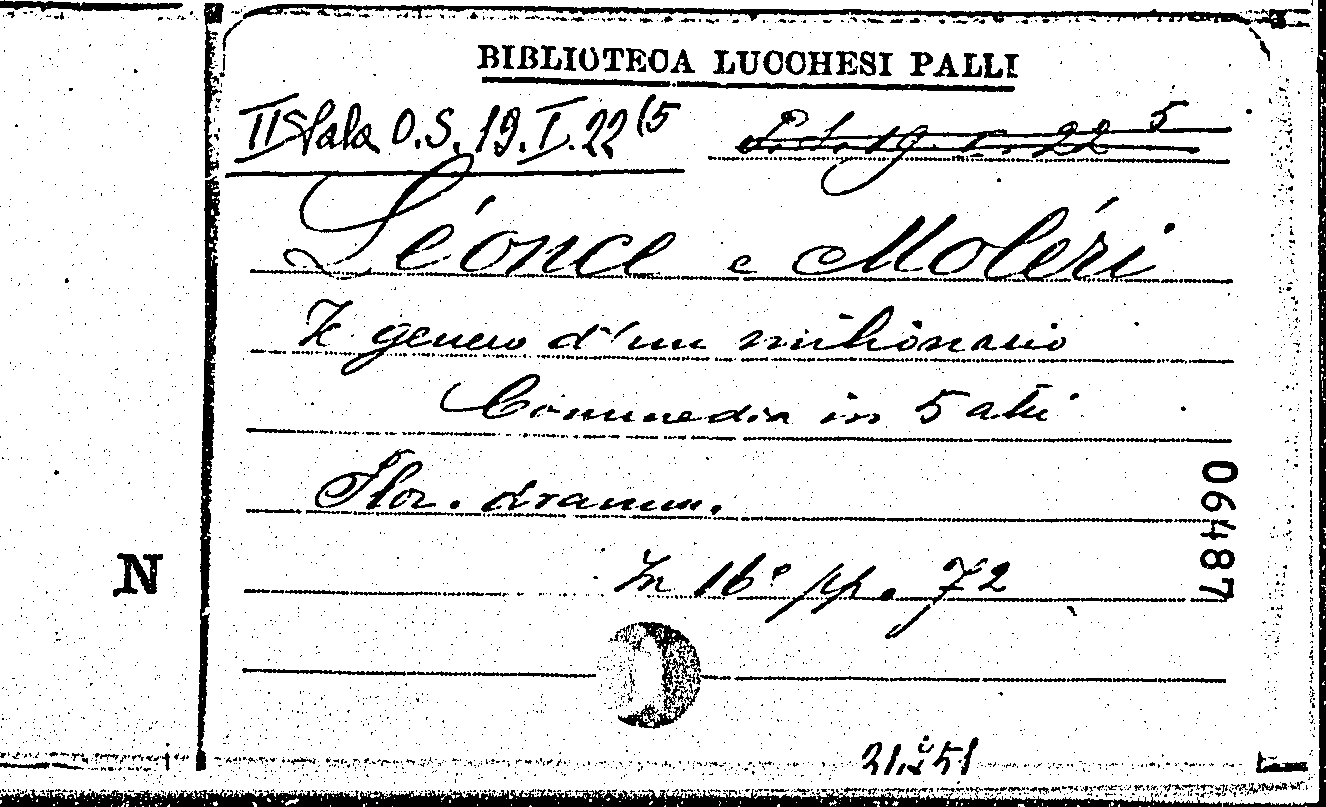 BIBLIOTECA LUCCHESI PALLI
II Sala O.S. 19. I. 22 (5
19. I. 22 5
Léonce e Moléri
Il genero d'un milionario
Commedia in 5 atti
Flor. dramm.
In 16° pp. 72
06487
N